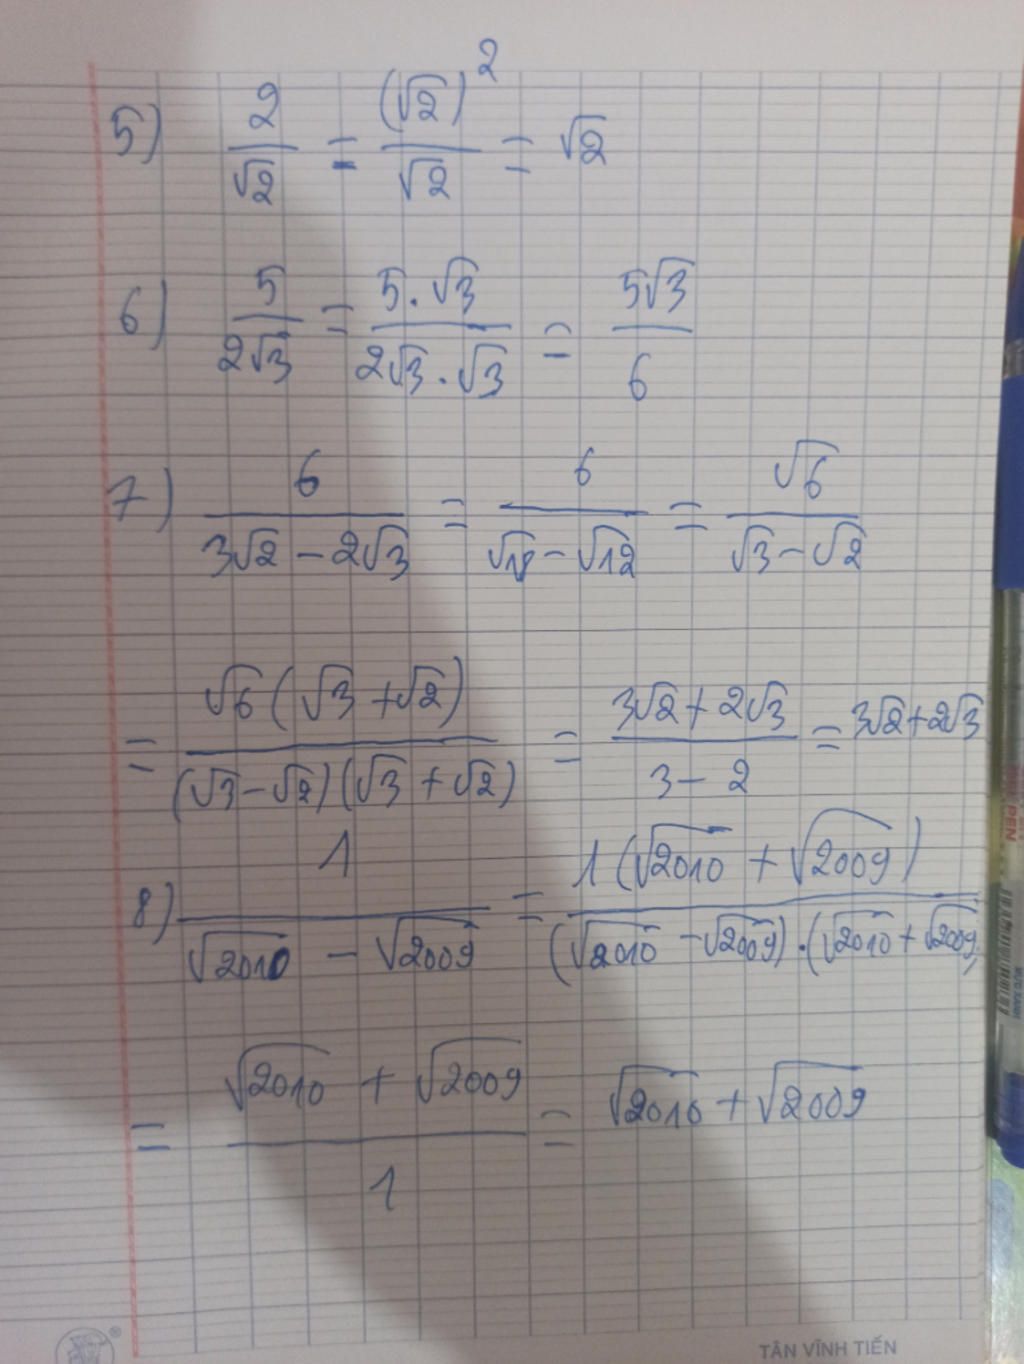 5) 2/√2 = (√2)²/√2 = √2
6) 5/2√3 = 5.√3/2√3.√3 = 5√3/6
7) 6/3√2-2√3 = 6/√18-√12 = √6/√3-√2
= √6(√3+√2)/(√3-√2)(√3+√2) = 3√2+2√3/3-2 = 3√2+2√3
8) 1/√2010-√2009 = 1(√2010+√2009)/(√2010-√2009).(√2010+√2009)
= √2010+√2009/1 = √2010+√2009
TÂN VĨNH TIẾN
PEN